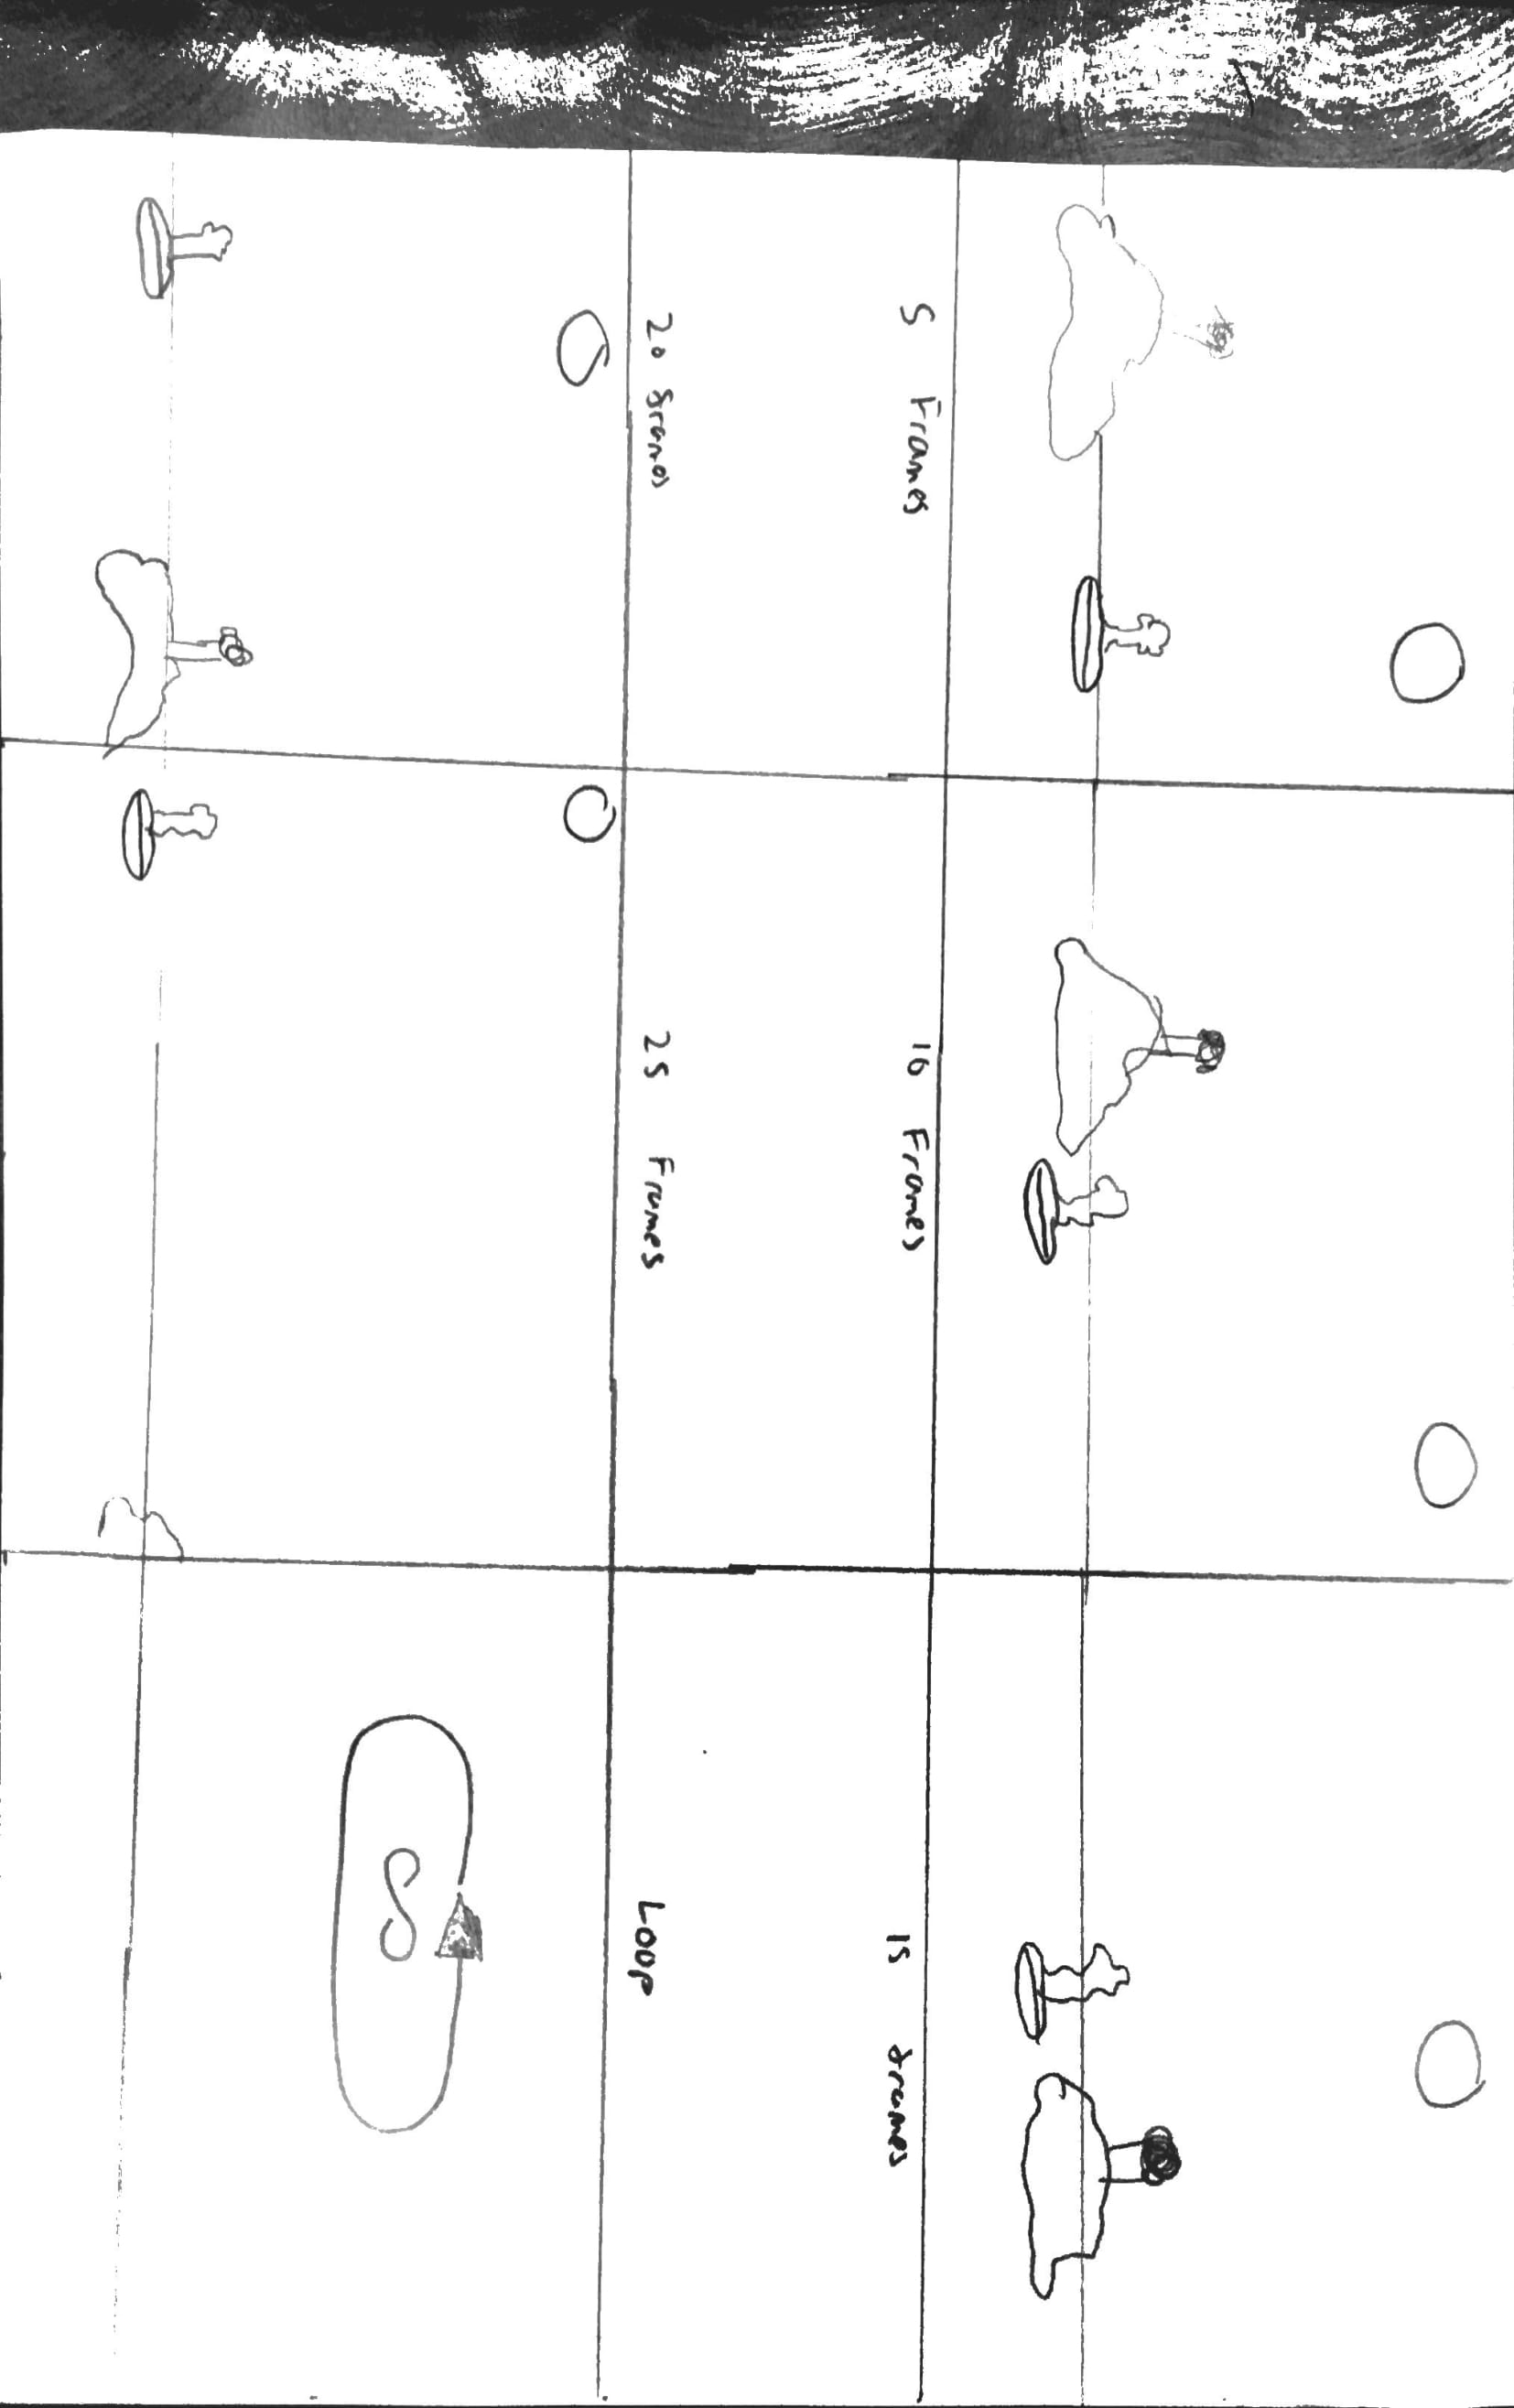 5 Frames
16 Frames
15 frames
20 frames
25 Frames
Loop